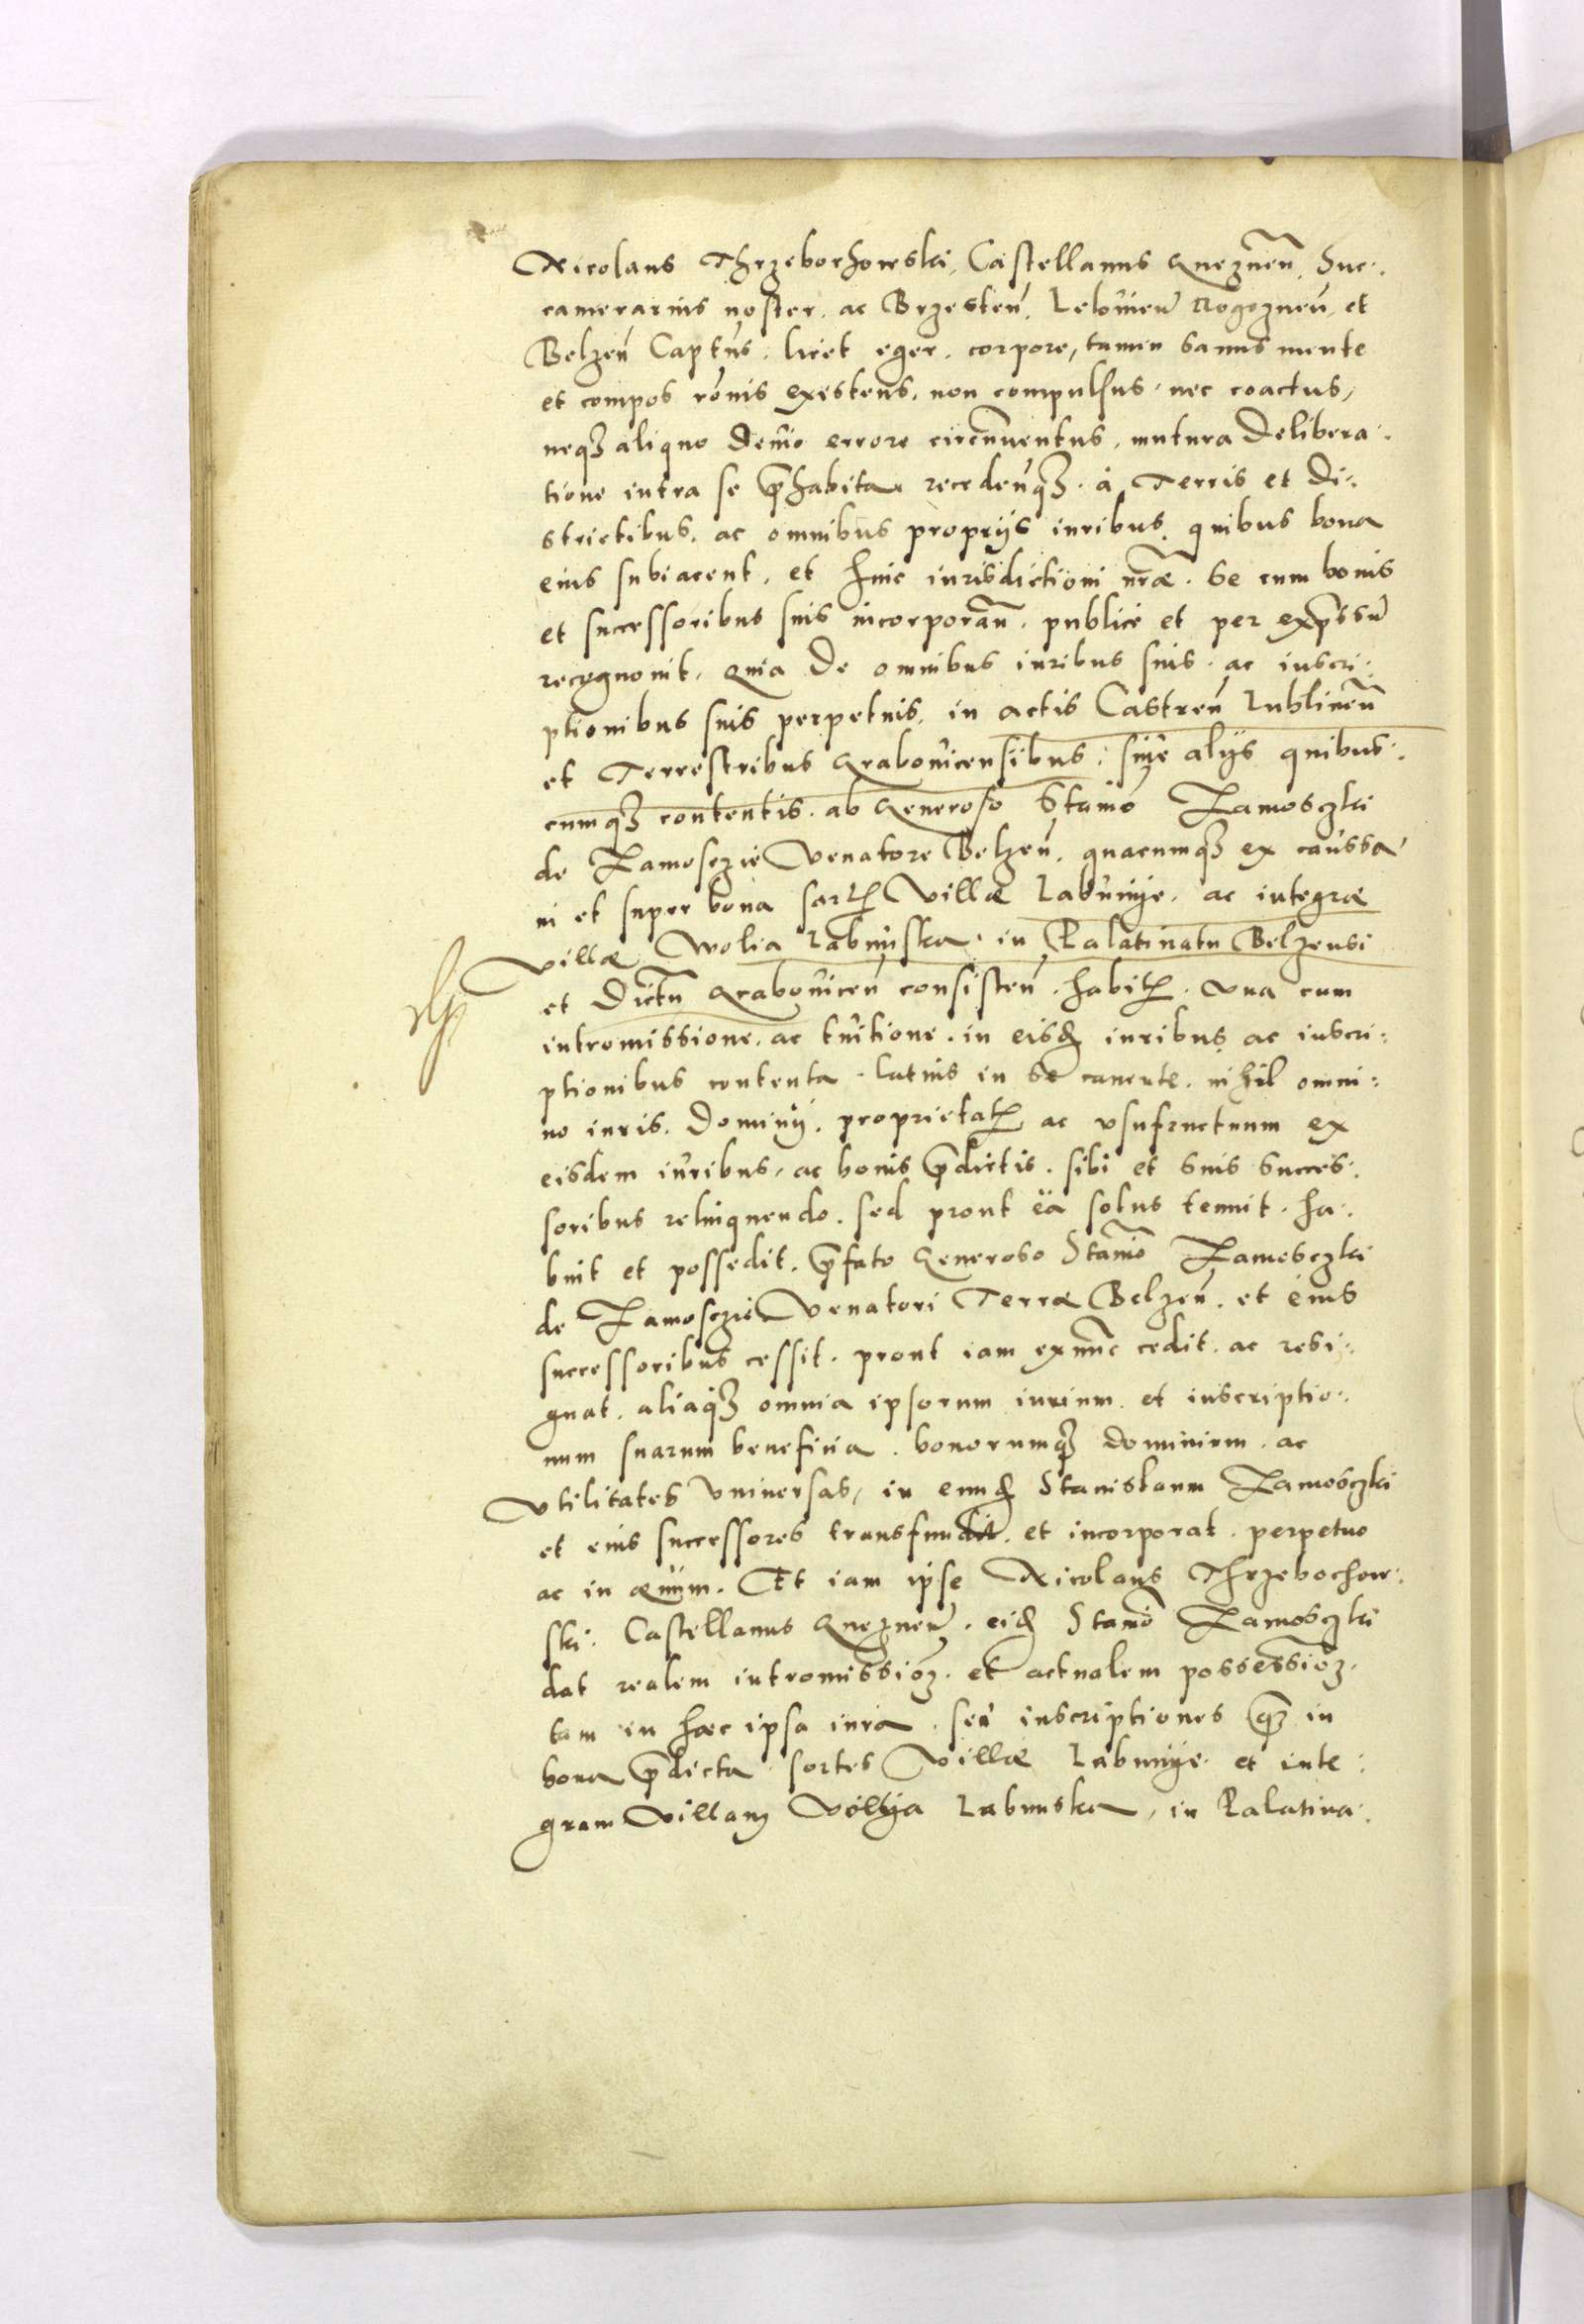 Nicolaus Thrzeborhowski, Castellanus Gneznen̄. Suc:
camerarius noster. ac Brzesten̄. Lelowien̄ Rogoznen̄, et
Belzen̄ Captūs. licet eger. corpore, tamen sanus mente
et compos rōnis existens. non compulsus. nec coactus,
neqz aliquo demō errore circūmventus, matura delibera:
tione intra se p̄habita recedenqz. à Terris et Di:
strictibus. ac omnibus proprijs iuribus. quibus bona
eius subiacent, et huic iurisdictioni nrāe. se cum bonis
et successoribus suis incorporan̄. publicè et per exp̄ssū
recognouit, Quia de omnibus iuribus suis. ac inscri:
ptionibus suis perpetuis. in actis Castren̄ Lublinen̄
et Terrestribus Grabowicensibus: siue alijs quibus:
cumqz contentis. ab Generoso Stanīo Zamosczki
de Zamosczie Venatore Belzen̄. quacumqz ex caussa
in et super bona sortꝭ Villæ Labunije. ac integræ
villæ Wolia Labuniska. in Palatinatu Belzensi
et Dictū Grabowicen̄ consisten̄. habitꝭ. vna cum
intromissione. ac tuitione. in eisd iuribus ac inscri:
ptionibus contenta. latius in se canente. nihil omni:
no iuris. Dominij. proprietatꝭ ac vsufructuum ex
eisdem iuribus, ac bonis p̄dictis. sibi et suis succes:
soribus relinquendo. sed prout ea solus tenuit. ha:
buit et possedit. p̄fato Generoso Stanīo Zamosczki
de Zamosczie Venatori Terræ Belzen̄. et eius
successoribus cessit. prout iam exnunc cedit. ac resi:
gnat. aliaqz omnia ipsorum iurium. et inscriptio:
num suarum beneficia. bonorumqz dominium. ac
Vtilitates Vniuersas, in eund Stanislaum Zamosczki
et eius successores transfundit. et incorporat. perpetuo
ac in æuum. Et iam ipse Nicolaus Thrzebochow:
ski. Castellanus Gneznen̄. eid Stanīo Zamosczki
dat realem intromissioz. et actualem possessioz.
tam in hæc ipsa iura. seu inscriptiones qz in
bona p̄dicta. sortes Villæ Labunije. et inte:
gram Villam Vollija Labunska, in Palatina: